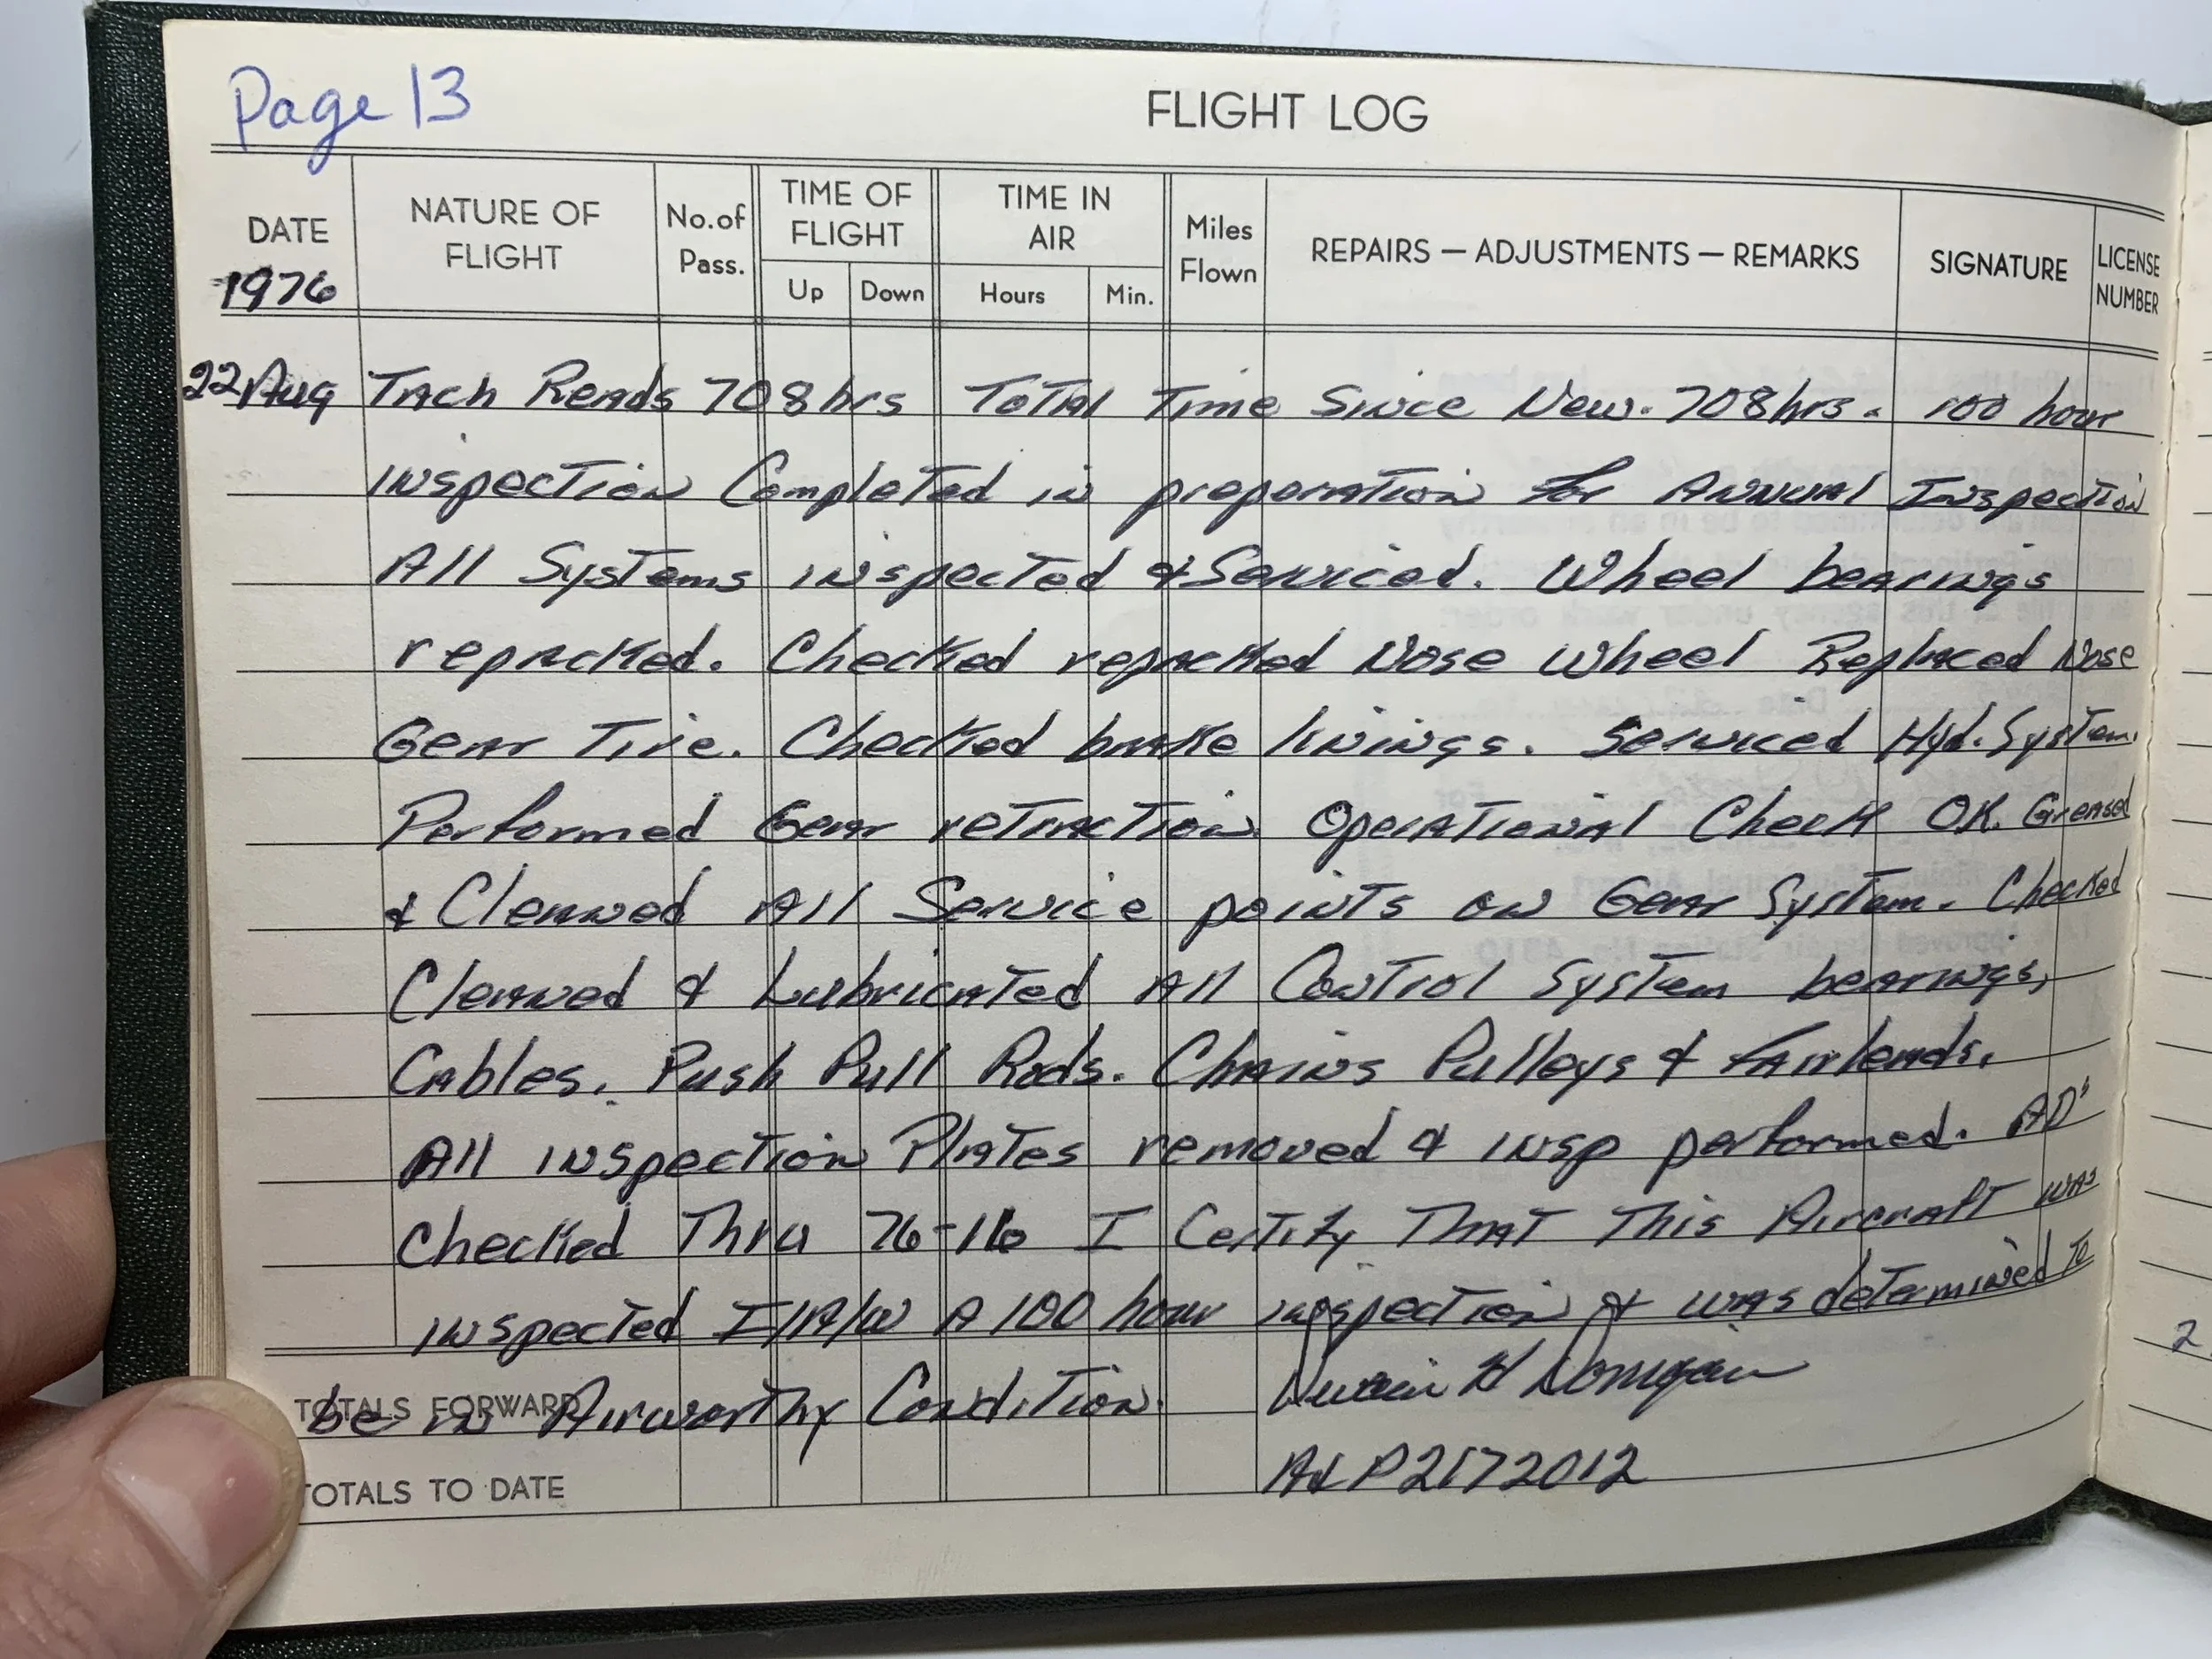 Page 13
FLIGHT LOG
DATE
1976
NATURE OF
FLIGHT
No.of
Pass.
TIME OF
FLIGHT
Up
Down
TIME IN
AIR
Hours
Min.
Miles
Flown
REPAIRS — ADJUSTMENTS — REMARKS
SIGNATURE
LICENSE
NUMBER
22 Aug Tach Reads 708 hrs Total Time Since New. 708 hrs. 100 hour
inspection Completed in preperation for Annual Inspection
All Systems inspected & Serviced. Wheel bearings
repacked. Checked repacked Nose Wheel Replaced Nose
Gear Tire. Checked brake linings. Serviced Hyd. System.
Performed Gear retraction Operational Check OK. Greased
& Cleaned All Service points on Gear System. Checked
Cleaned & Lubricated All Control System bearings,
Cables. Push Pull Rods. Chains Pulleys & Fairleads.
All inspection Plates removed & insp performed. AD's
Checked Thru 76-16 I Certify That This Aircraft was
inspected I/A/W A 100 hour inspection & was determined to
TOTALS FORWARD
be in Airworthy Condition. H Donegain
TOTALS TO DATE
A&P 2172012
2